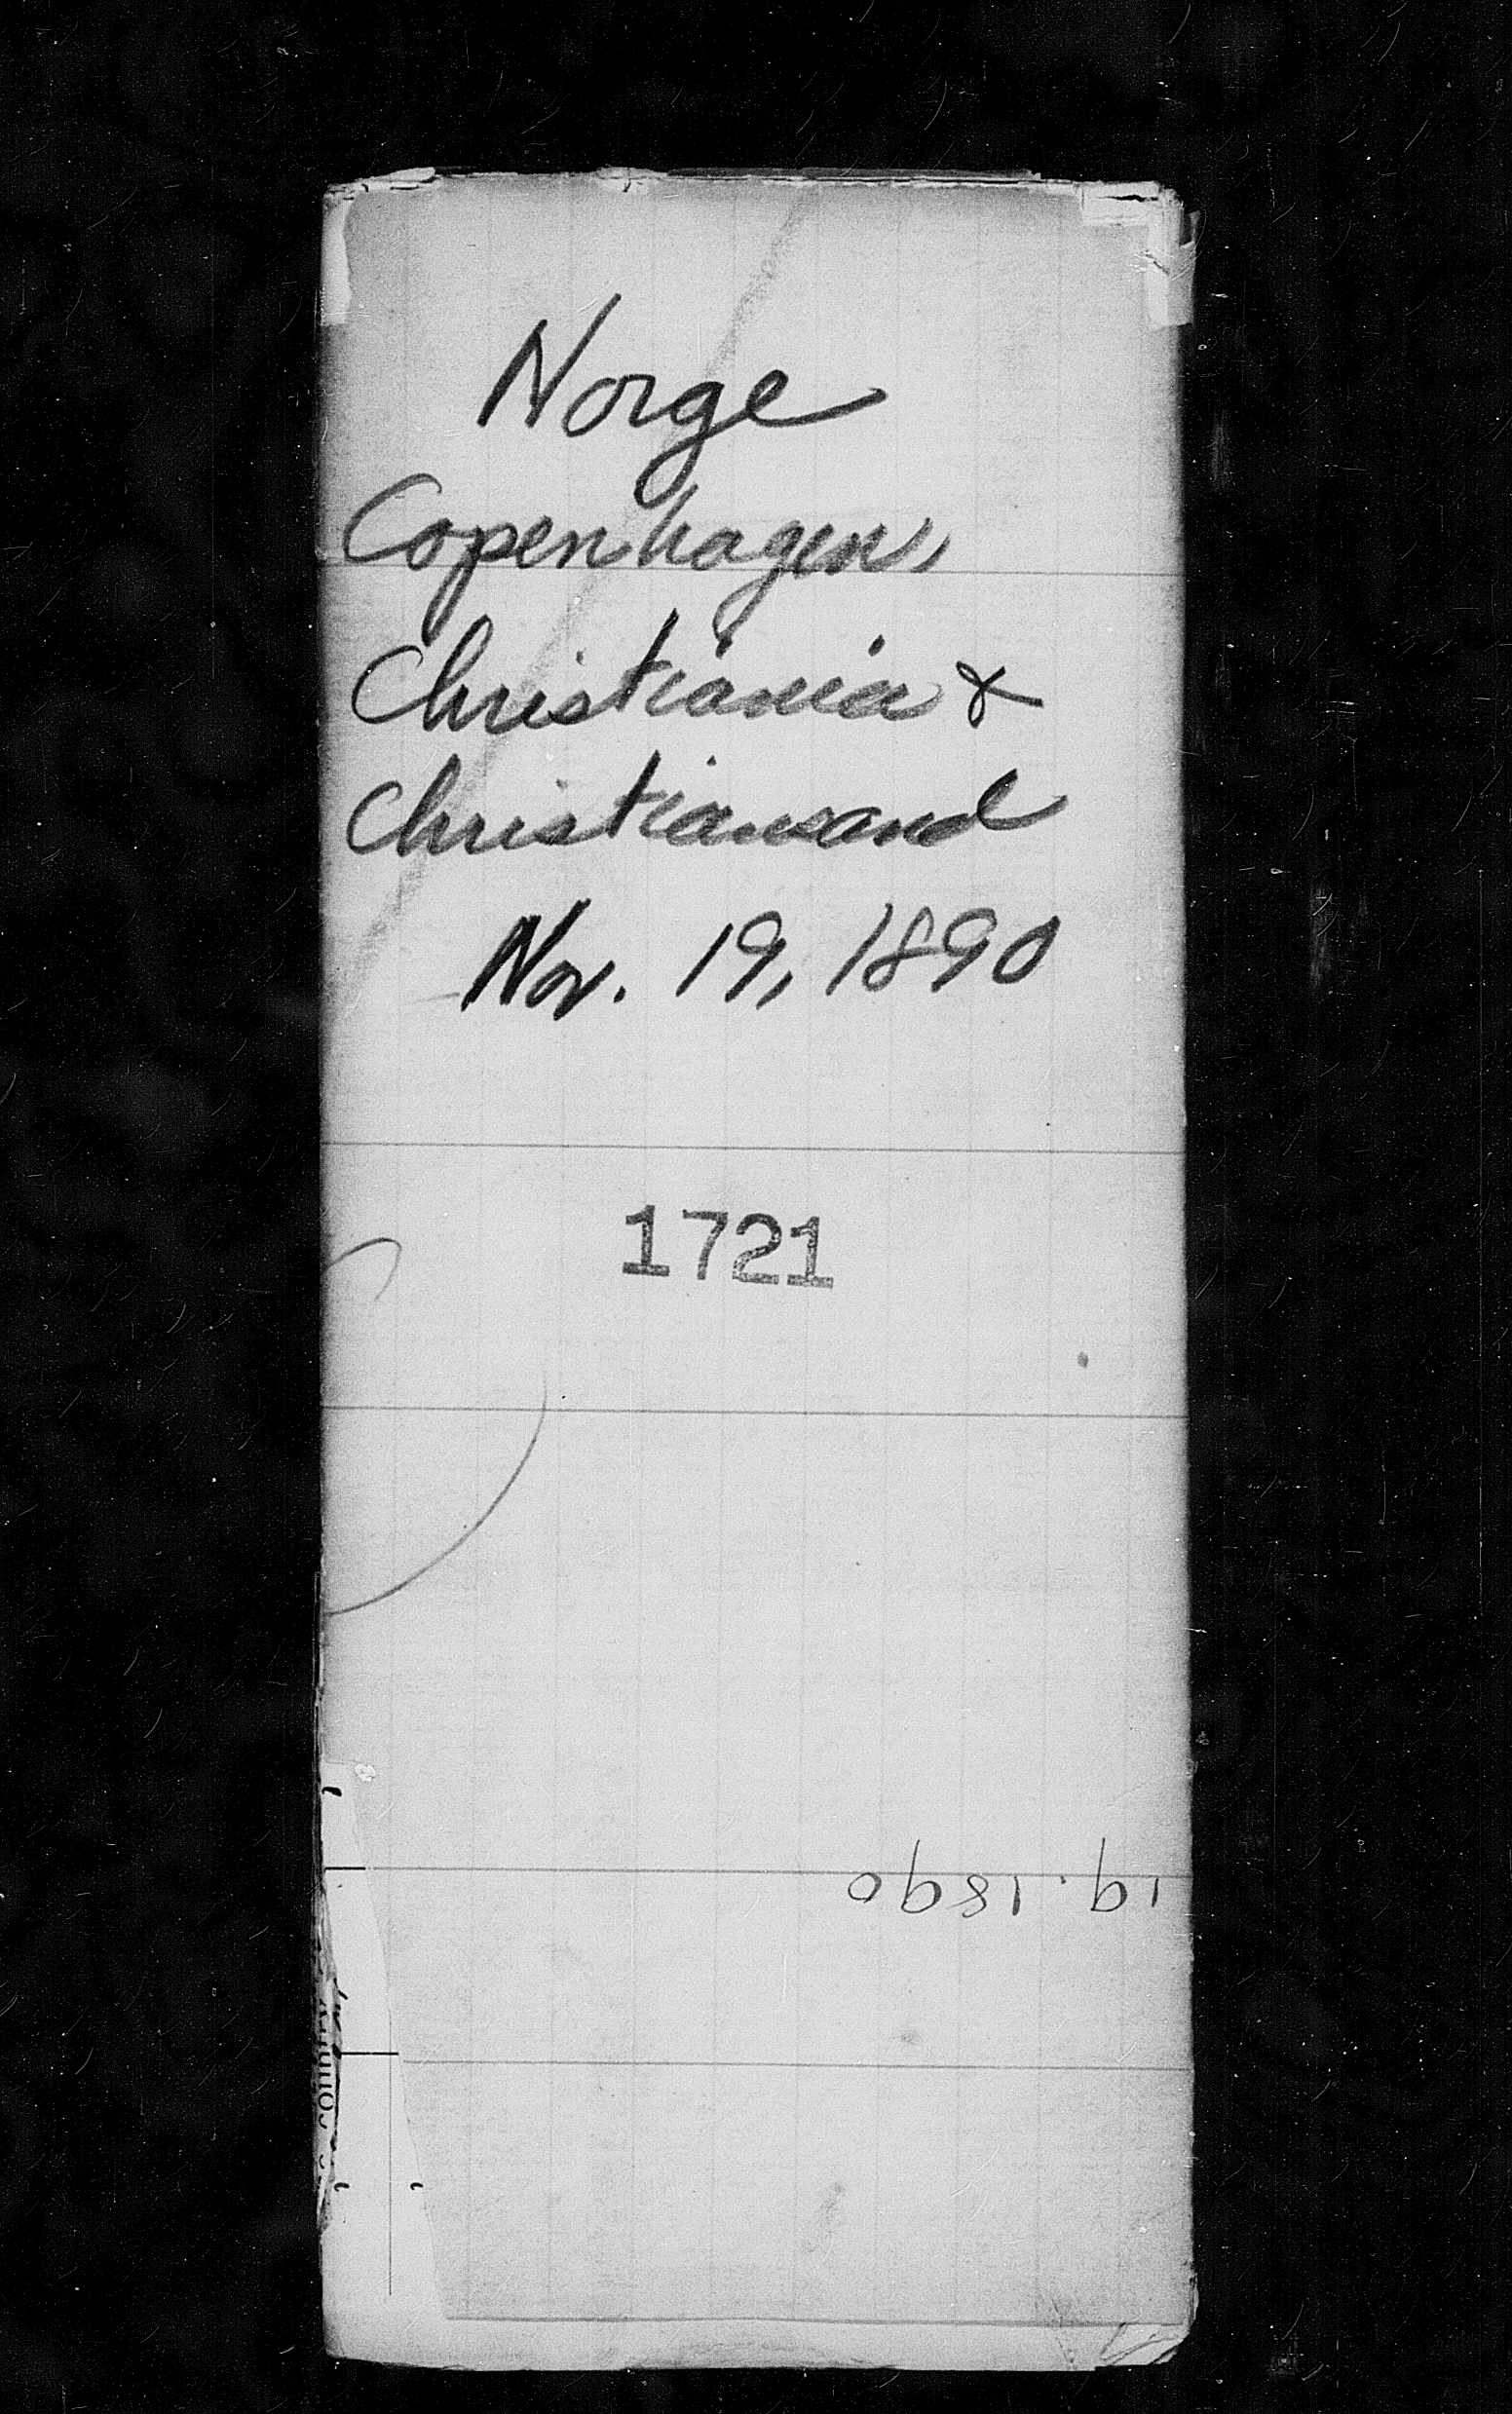 Norge
Copenhagen,
Christiania &
Christiansand
Nov. 19, 1890
1721
19. 1890
country